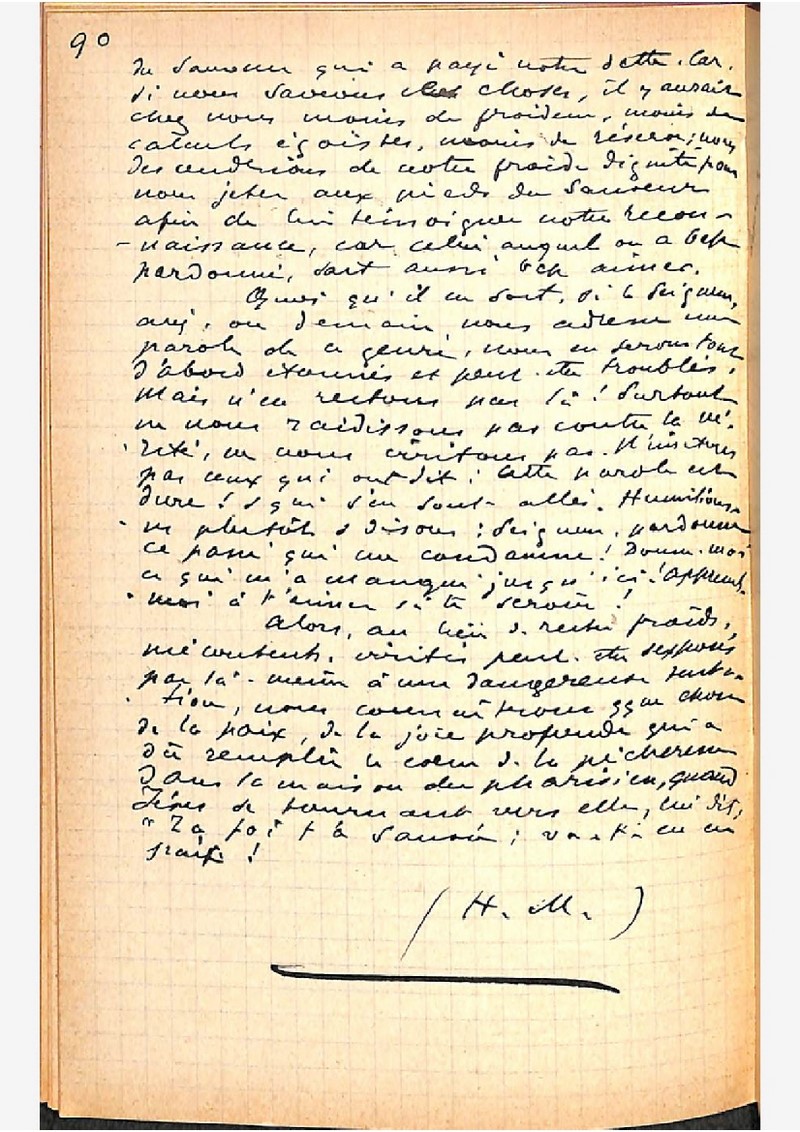 90
du Sauveur qui a payé notre dette. Car,
si nous savions ces choses, il y aurait
chez nous moins de froideur, moins de
calculs égoïstes, moins de réserve; nous
descendrions de notre froide dignité pour
nous jeter aux pieds du Sauveur
afin de lui témoigner notre recon-
-naissance, car celui auquel on a bcp
pardonné, sait aussi bcp aimer.
Quoi qu'il en soit, si le Seigneur,
auj. ou demain nous adresse une
parole de ce genre, nous en serons tout
d'abord étonnés et peut-être troublés.
Mais n'en restons pas là! Surtout
ne nous raidissons pas contre la vé-
rité, ne nous irritons pas. N'imitons
pas ceux qui ont dit: Cette parole est
dure! & qui s'en sont allés. Humilions-
-ns plutôt & disons: Seigneur, pardonne
ce passé qui me condamne! Donne-moi
ce qui m'a manqué jusqu'ici! Apprends-
-moi à t'aimer & à te servir!
Alors, au lieu de rester froids,
mécontents, irrités peut-être & exposés
par là-même à une dangereuse tenta-
-tion, nous connaîtrons qque chose
de la paix, de la joie profonde qui a
dû remplir le cœur de la pécheresse
dans la maison du pharisien, quand
Jésus se tournant vers elle, lui dit:
"Ta foi t'a sauvée; va-t-en en
paix!
(H. M.)